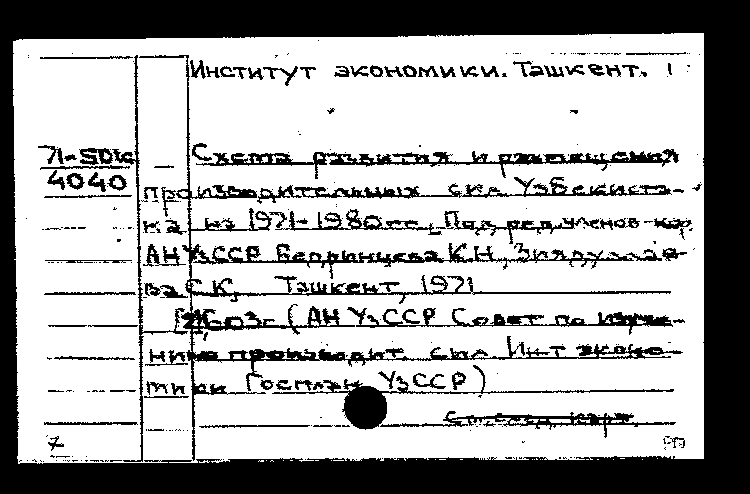 Институт экономики. Ташкент.
71-5DK
4040
Схема развития и размещения
производительных сил Узбекиста-
на на 1971-1980гг. Под ред. членов-кор.
АН УзССР Бедринцева К.Н., Зиядуллае-
ва С.К. Ташкент, 1971
603с (АН УзССР Совет по изуче-
нию производит. сил Ин-т эконо
мики Госплан УзССР)
См. след. карт.
7